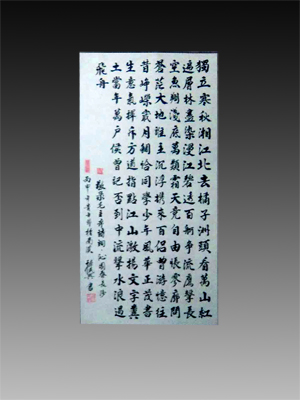 獨立寒秋湘江北去橘子洲頭看萬山紅
遍層林盡染漫江碧透百舸爭流鷹擊長
空魚翔淺底萬類霜天競自由悵寥廓問
蒼茫大地誰主沉浮攜來百侶曾游憶往
昔崢嶸歲月稠恰同學少年風華正茂書
生意氣揮斥方遒指點江山激揚文字糞
土當年萬戶侯曾記否到中流擊水浪遏
飛舟
敬录毛主席詩詞 沁園春長沙
丙申年 書